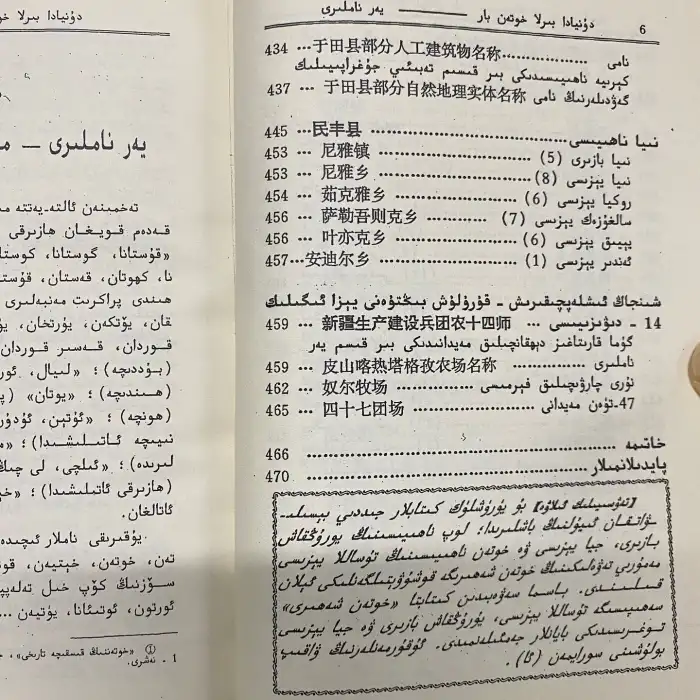 6 دۇنيادا بىرلا خوتەن بار —— يەر ناملىرى
نامى ................ 于田县部分人工建筑物名称... 434
كېرىيە ناھىيىسىدىكى بىر قىسىم تەبىئىي جۇغراپىيىلىك
گەۋدىلەرنىڭ نامى 于田县部分自然地理实体名称 ... 437
نىيا ناھىيىسى ................ 民丰县... 445
نىيا بازىرى (5) ................ 尼雅镇 ... 453
نىيا يېزىسى (8) ................ 尼雅乡 ... 453
روكيا يېزىسى (6) ................ 茹克雅乡 ... 454
سالغۇزەك يېزىسى (7) ........ 萨勒吾则克乡 ... 456
يېيىق يېزىسى (6) ................ 叶亦克乡 ... 456
ئەندىر يېزىسى (1) ................ 安迪尔乡...457
شىنجاڭ ئىشلەپچىقىرىش - قۇرۇلۇش بىڭتۇەنى يېزا ئىگىلىك
14 - دىۋىزىيىسى ... 新疆生产建设兵团农十四师 ... 459
گۇما قارىتاغىز دېھقانچىلىق مەيدانىدىكى بىر قىسىم يەر
ناملىرى ........ 皮山喀热塔格孜农场名称 ... 459
نۇرى چارۋىچىلىق فېرمىسى ........ 奴尔牧场 ... 462
47-تۇەن مەيدانى ................ 四十七团场 ... 465
خاتىمە ................ 466
پايدىلانمىلار ................ 470
[تەۋسىيىلىك ئىلاۋە] بۇ يۈرۈشلۈك كىتابلار جىددىي بېسىلى-
ۋاتقان ئىيۇلنىڭ باشلىرىدا؛ لوپ ناھىيىسىنىڭ يورۇڭقاش
بازىرى، جىيا يېزىسى ۋە خوتەن ناھىيىسىنىڭ تۇساللا يېزىسى
مەمۇرىي تەۋەلىكىنىڭ خوتەن شەھىرىگە قوشۇۋېتىلگەنلىكى ئېلان
قىلىندى. باسما سەۋەبىدىن كىتابتا «خوتەن شەھىرى»
سەھىپىسىگە تۇساللا يېزىسى، يورۇڭقاش بازىرى ۋە جىيا يېزىسى
توغرىسىدىكى بايانلار جەملەنمىدى. ئوقۇرمەنلەرنىڭ ۋاقىپ
بولۇشىنى سورايمەن (ئا).
دۇنيادا بىرلا
يەر ناملىرى —
تەخمىنەن ئالتە-يەتتە
قەدەم قويغان ھازىرقى
«قۇستانا، گوستانا، كوستا
نا، كھوتان، قەستان، قۇستـ
ھىندى پراكرىت مەنبەلىرى
قان، يۆتكەن، يۇرتخان،
قوردان، قەسىر قوردان
(بۇددىچە)؛ «لىيال، ئور
(ھىندىچە)؛ «يوتان»
(ھونچە)؛ «ئۇتېن، ئۇدۇ
نىيىچە ئاتىلىشىدا)؛
لىرىدە)؛ «ئىلچى، لى چىـ
(ھازىرقى ئاتىلىشىدا)؛ «خـ
ئاتالغان.
يۇقىرىقى ناملار ئىچىدە
تەن، خوتەن، خېتيەن،
سۆزنىڭ كۆپ خىل تەلەپپ
ئورتون، ئوتىئانا، يۇتيەن ...
① «خوتەننىڭ قىسقىچە تارىخى»،
1 - نەشرى.